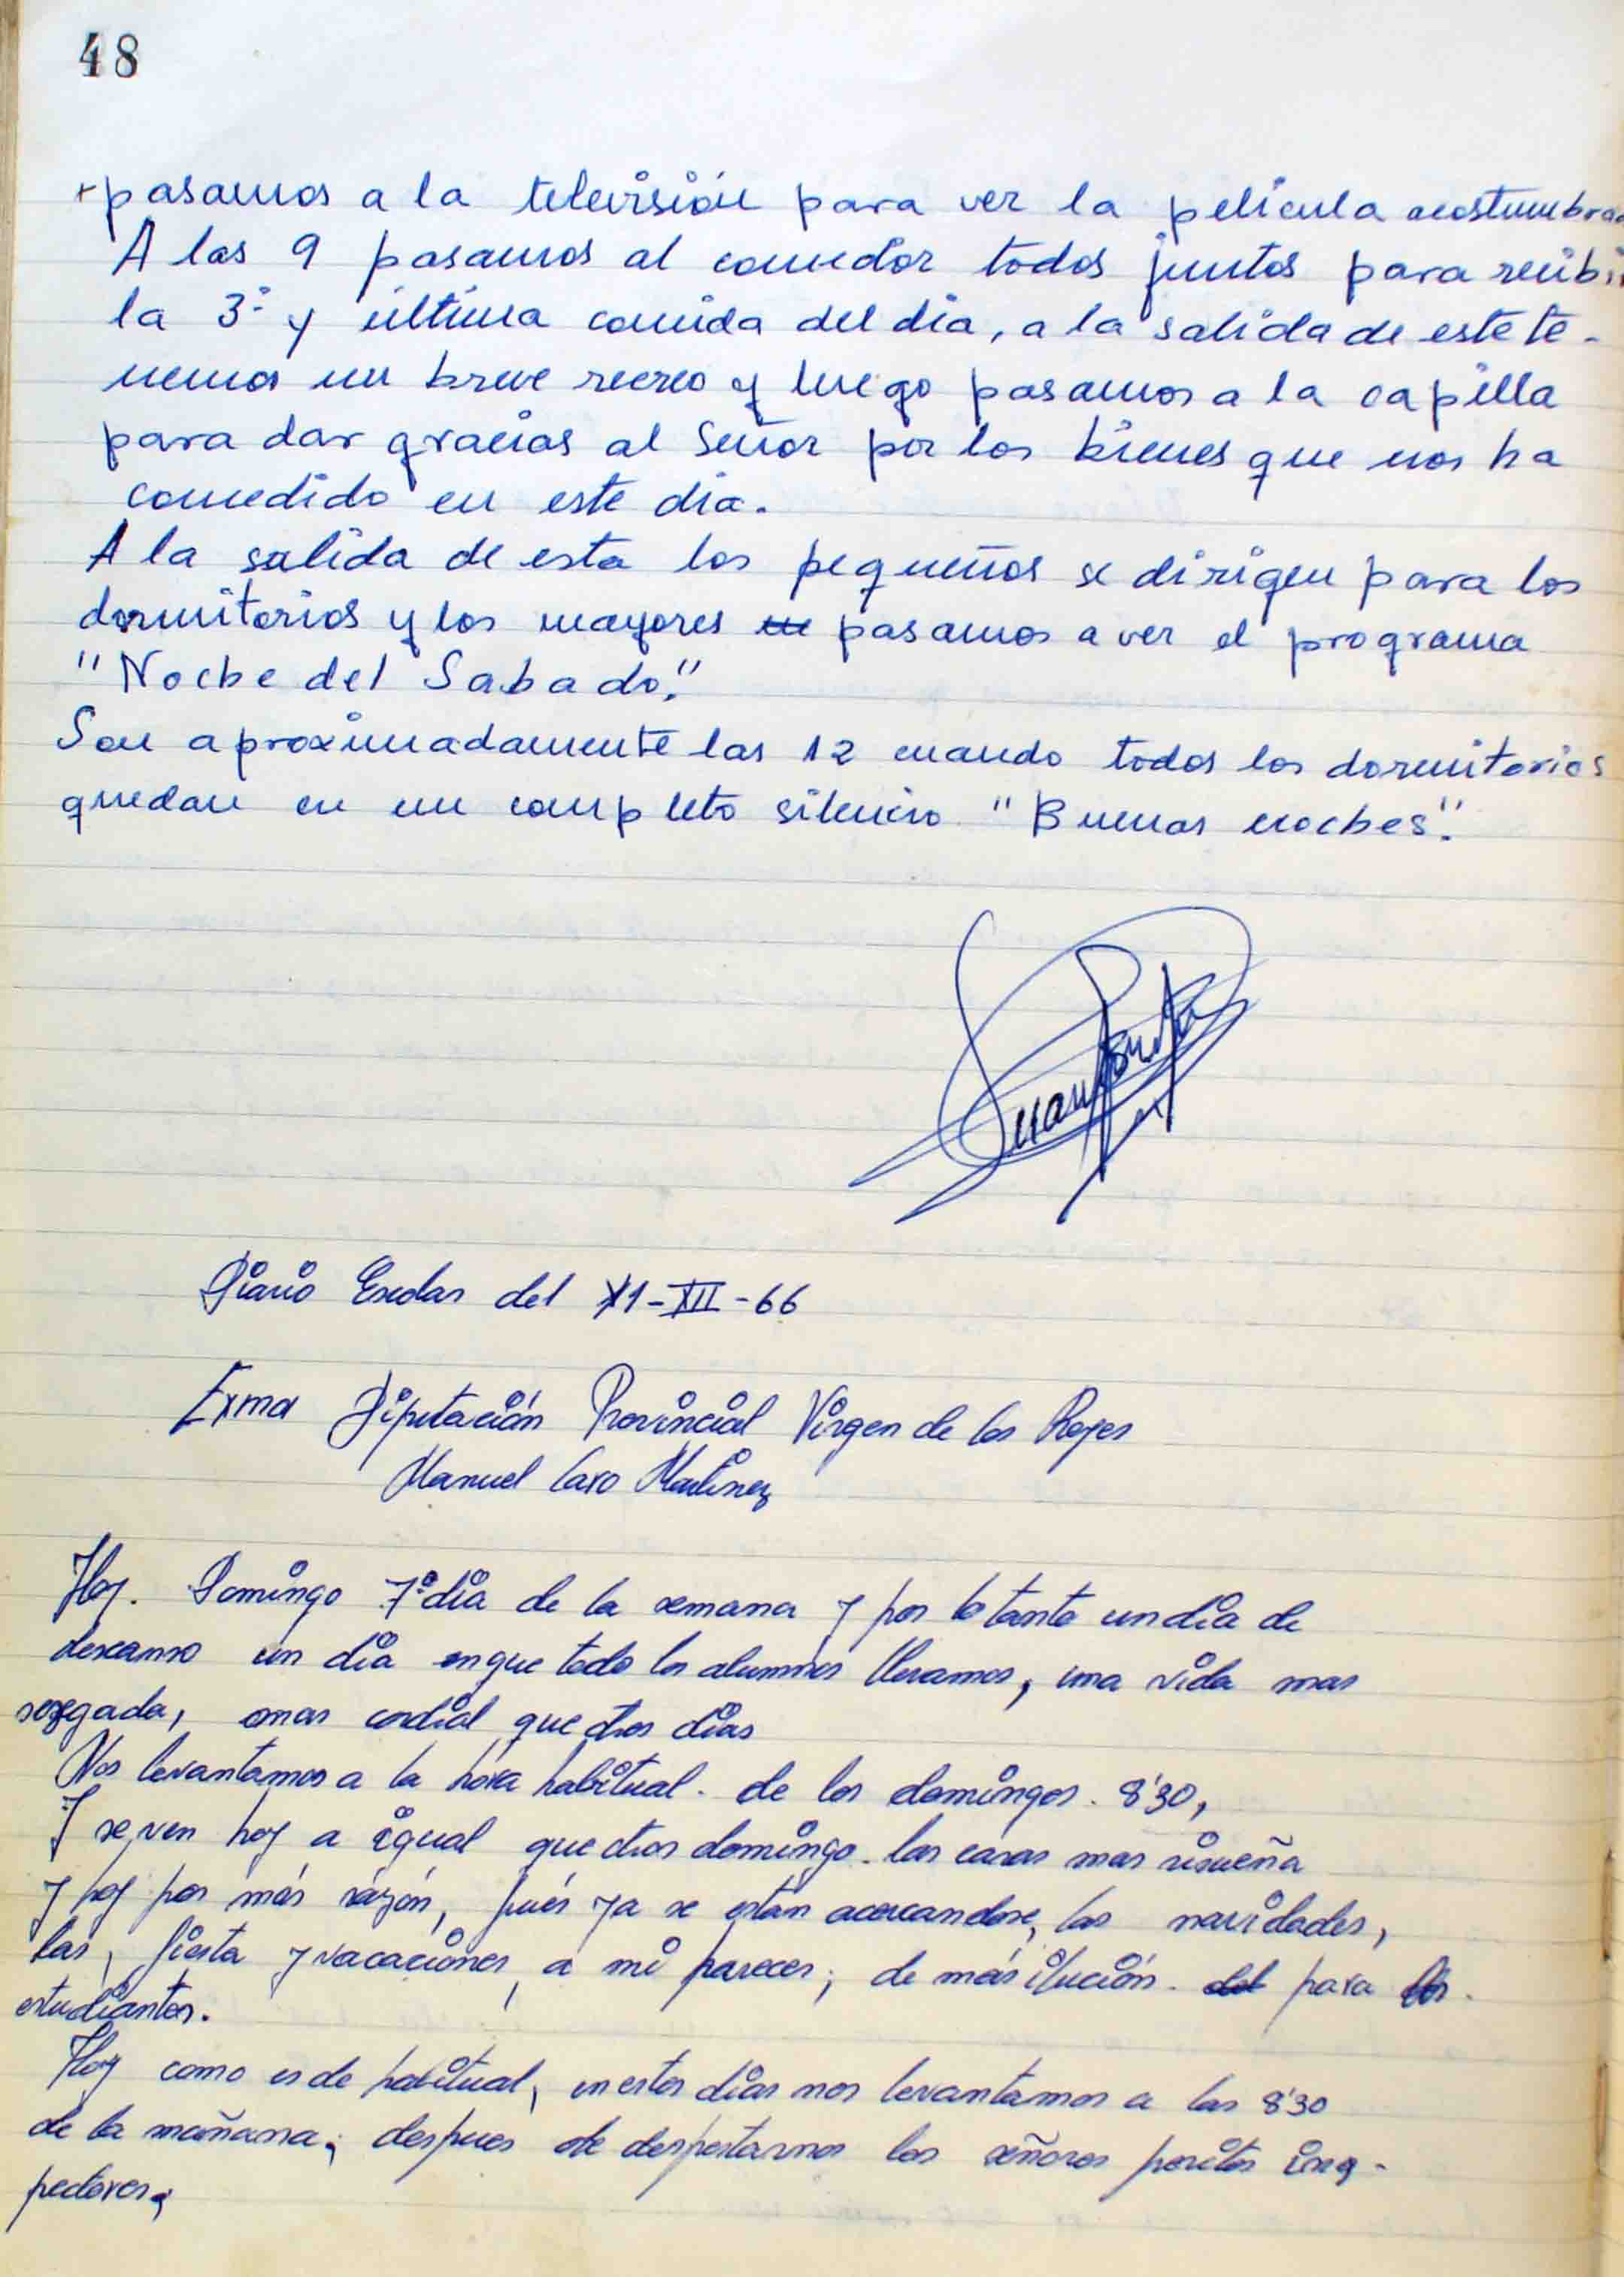 48
pasamos a la televisión para ver la película acostumbra
A las 9 pasamos al comedor todos juntos para recibi
la 3ª y última comida del día, a la salida de este te-
nemos un breve recreo y luego pasamos a la capilla
para dar gracias al Señor por los bienes que nos ha
concedido en este dia.
A la salida de esta los pequeños se dirigen para los
dormitorios y los mayores pasamos a ver el programa
"Noche del Sabado."
Son aproximadamente las 12 cuando todos los dormitorios
quedan en un completo silencio "Buenas noches".
Juan
Diario Escolar del 11-XII-66
Exma Diputación Provincial Virgen de los Reyes
Manuel Caro Martinez
Hoy. Domingo 7º dia de la semana y por lo tanto un dia de
descanso un dia en que todo los alumnos llevamos, una vida mas
sosegada, mas cordial que otros dias
Nos levantamos a la hora habitual. de los domingos. 8'30,
Y se ven hoy a igual que otros domingo. las caras mas risueña
y hoy por más razón, pués ya se están acercandose, las navidades,
las, fiesta y vacaciones, a mi parecer; de más ilución. para los.
estudiantes.
Hoy como es de habitual, en estos dias nos levantamos a las 8'30
de la mañana; despues de despertarnos los señores peritos ins-
pectores,